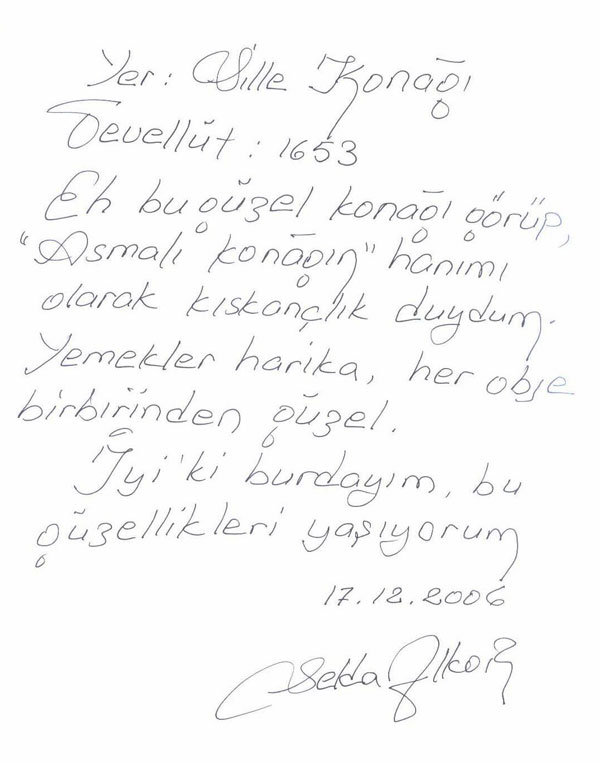 Yer: Sille Konağı
Tevellüt : 1653
Eh bu güzel konağı görüp,
"Asmalı konağın" hanımı
olarak kıskançlık duydum.
Yemekler harika, her obje
birbirinden güzel.
İyi'ki burdayım, bu
güzellikleri yaşıyorum
17.12.2006
Selda Alkor